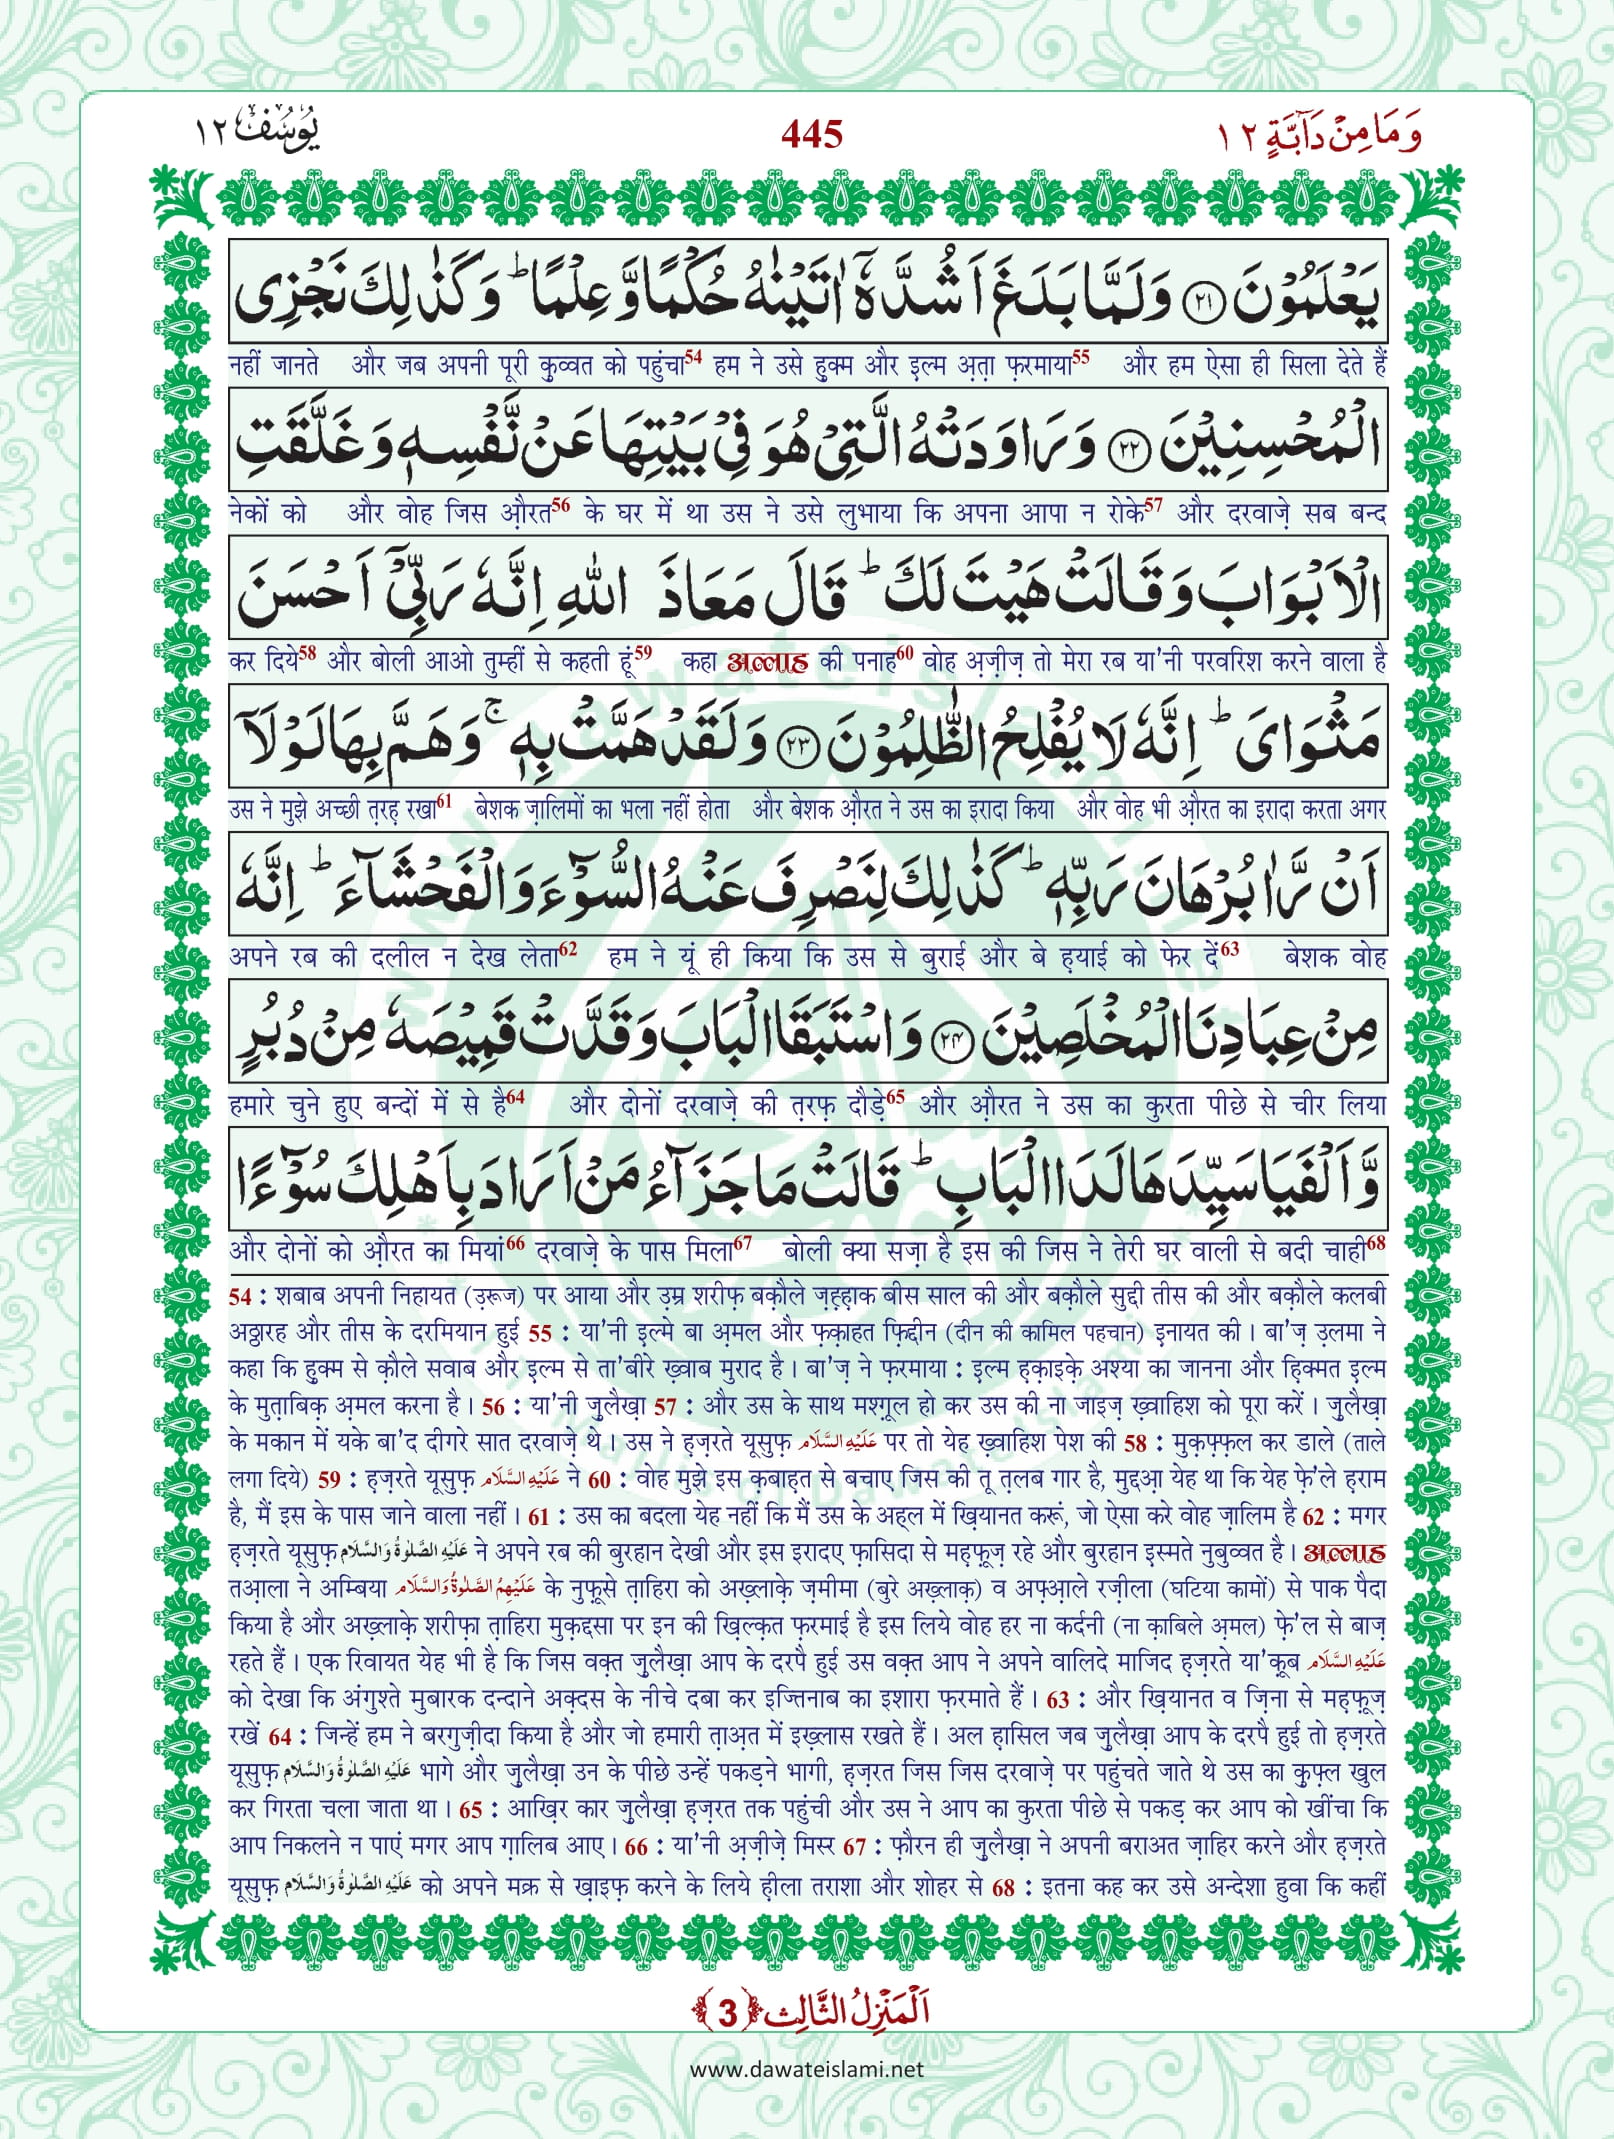 وَمَا مِنْ دَآبَّةٍ ١٢
445
يُوْسُف ١٢
يَعْلَمُوْنَ ﴿٢١﴾ وَلَمَّا بَلَغَ اَشُدَّهٗۤ اٰتَیْنٰهُ حُكْمًا وَّ عِلْمًاؕ وَ كَذٰلِكَ نَجْزِی
नहीं जानते और जब अपनी पूरी कुव्वत को पहुंचा54 हम ने उसे हुक्म और इल्म अ़त़ा फ़रमाया55 और हम ऐसा ही सिला देते हैं
الْمُحْسِنِیْنَ ﴿٢٢﴾ وَ رَاوَدَتْهُ الَّتِیْ هُوَ فِیْ بَیْتِهَا عَنْ نَّفْسِهٖ وَ غَلَّقَتِ
नेकों को और वोह जिस औ़रत56 के घर में था उस ने उसे लुभाया कि अपना आपा न रोके57 और दरवाज़े सब बन्द
الْاَبْوَابَ وَ قَالَتْ هَیْتَ لَكَؕ قَالَ مَعَاذَ اللّٰهِ اِنَّهٗ رَبِّیْۤ اَحْسَنَ
कर दिये58 और बोली आओ तुम्हीं से कहती हूं59 कहा अल्लाह की पनाह60 वोह अ़ज़ीज़ तो मेरा रब या'नी परवरिश करने वाला है
مَثْوَایَؕ اِنَّهٗ لَا یُفْلِحُ الظّٰلِمُوْنَ ﴿٢٣﴾ وَ لَقَدْ هَمَّتْ بِهٖۚ وَ هَمَّ بِهَا لَوْلَاۤ
उस ने मुझे अच्छी त़रह़ रखा61 बेशक ज़ालिमों का भला नहीं होता और बेशक औ़रत ने उस का इरादा किया और वोह भी औ़रत का इरादा करता अगर
اَنْ رَّاٰ بُرْهَانَ رَبِّهٖؕ كَذٰلِكَ لِنَصْرِفَ عَنْهُ السُّوْٓءَ وَ الْفَحْشَآءَؕ اِنَّهٗ
अपने रब की दलील न देख लेता62 हम ने यूं ही किया कि उस से बुराई और बे ह़याई को फेर दें63 बेशक वोह
مِنْ عِبَادِنَا الْمُخْلَصِیْنَ ﴿٢٤﴾ وَ اسْتَبَقَا الْبَابَ وَ قَدَّتْ قَمِیْصَهٗ مِنْ دُبُرٍ
हमारे चुने हुए बन्दों में से है64 और दोनों दरवाज़े की त़रफ़ दौड़े65 और औ़रत ने उस का कुरता पीछे से चीर लिया
وَّ اَلْفَیَا سَیِّدَهَا لَدَا الْبَابِؕ قَالَتْ مَا جَزَآءُ مَنْ اَرَادَ بِاَهْلِكَ سُوْٓءًا
और दोनों को औ़रत का मियां66 दरवाज़े के पास मिला67 बोली क्या सज़ा है इस की जिस ने तेरी घर वाली से बदी चाही68
54 : शबाब अपनी निहायत (उ़रूज) पर आया और उ़म्र शरीफ़ बक़ौले ज़ह़्ह़ाक बीस साल की और बक़ौले सुद्दी तीस की और बक़ौले कलबी
अठ्ठारह और तीस के दरमियान हुई 55 : या'नी इल्मे बा अ़मल और फ़क़ाहत फ़िद्दीन (दीन की कामिल पहचान) इ़नायत की । बा'ज़ उ़लमा ने
कहा कि हुक्म से क़ौले सवाब और इल्म से ता'बीरे ख़्वाब मुराद है । बा'ज़ ने फ़रमाया : इल्म ह़क़ाइक़े अश्या का जानना और ह़िक्मत इल्म
के मुत़ाबिक़ अ़मल करना है । 56 : या'नी ज़ुलैख़ा 57 : और उस के साथ मश्ग़ूल हो कर उस की ना जाइज़ ख़्वाहिश को पूरा करें । ज़ुलैख़ा
के मकान में यके बा'द दीगरे सात दरवाज़े थे । उस ने ह़ज़रते यूसुफ़ عَلَیْهِ السَّلَام पर तो येह ख़्वाहिश पेश की 58 : मुक़फ़्फ़ल कर डाले (ताले
लगा दिये) 59 : ह़ज़रते यूसुफ़ عَلَیْهِ السَّلَام ने 60 : वोह मुझे इस क़बाह़त से बचाए जिस की तू त़लब गार है, मुद्दआ़ येह था कि येह फ़े'ले ह़राम
है, मैं इस के पास जाने वाला नहीं । 61 : उस का बदला येह नहीं कि मैं उस के अह्ल में ख़ियानत करूं, जो ऐसा करे वोह ज़ालिम है 62 : मगर
ह़ज़रते यूसुफ़ عَلَیْهِ الصَّلٰوةُ وَالسَّلَام ने अपने रब की बुरहान देखी और इस इरादए फ़ासिदा से मह़फ़ूज़ रहे और बुरहान इस्मते नुबुव्वत है । अल्लाह
तआ़ला ने अम्बिया عَلَیْهِمُ الصَّلٰوةُ وَالسَّلَام के नुफ़ूसे त़ाहिरा को अख़्लाक़े ज़मीमा (बुरे अख़्लाक़) व अफ़्आ़ले रज़ीला (घटिया कामों) से पाक पैदा
किया है और अख़्लाक़े शरीफ़ा त़ाहिरा मुक़द्दसा पर इन की ख़िल्क़त फ़रमाई है इस लिये वोह हर ना कर्दनी (ना क़ाबिले अ़मल) फ़े'ल से बाज़
रहते हैं । एक रिवायत येह भी है कि जिस वक़्त ज़ुलैख़ा आप के दरपै हुई उस वक़्त आप ने अपने वालिदे माजिद ह़ज़रते या'क़ूब عَلَیْهِ السَّلَام
को देखा कि अंगुश्ते मुबारक दन्दाने अक़्दस के नीचे दबा कर इज्तिनाब का इशारा फ़रमाते हैं । 63 : और ख़ियानत व ज़िना से मह़फ़ूज़
रखें 64 : जिन्हें हम ने बरगुज़ीदा किया है और जो हमारी त़ाअ़त में इख़्लास रखते हैं । अल ह़ासिल जब ज़ुलैख़ा आप के दरपै हुई तो ह़ज़रते
यूसुफ़ عَلَیْهِ الصَّلٰوةُ وَالسَّلَام भागे और ज़ुलैख़ा उन के पीछे उन्हें पकड़ने भागी, ह़ज़रत जिस जिस दरवाज़े पर पहुंचते जाते थे उस का क़ुफ़्ल खुल
कर गिरता चला जाता था । 65 : आख़िर कार ज़ुलैख़ा ह़ज़रत तक पहुंची और उस ने आप का कुरता पीछे से पकड़ कर आप को खींचा कि
आप निकलने न पाएं मगर आप ग़ालिब आए । 66 : या'नी अ़ज़ीज़े मिस्र 67 : फ़ौरन ही ज़ुलैख़ा ने अपनी बराअत ज़ाहिर करने और ह़ज़रते
यूसुफ़ عَلَیْهِ الصَّلٰوةُ وَالسَّلَام को अपने मक्र से ख़ाइफ़ करने के लिये ह़ीला तराशा और शोहर से 68 : इतना कह कर उसे अन्देशा हुवा कि कहीं
اَلْمَنْزِلُ الثَّالِث ﴿3﴾
www.dawateislami.net